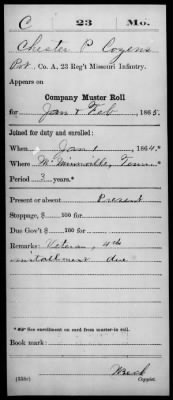 C 23 Mo.
Chester P Cozens
Pvt, Co. A, 23 Reg't Missouri Infantry.
Appears on
Company Muster Roll
for Jan & Feb, 1865.
Joined for duty and enrolled:
When Jan 1, 1864.*
Where McMinnville, Tenn
Period 3 years.*
Present or absent Present
Stoppage, $ 100 for
Due Gov't $ 100 for
Remarks: Veteran, 4th
installment due
*See enrollment on card from muster-in roll.
Book mark:
(358c) Copyist.